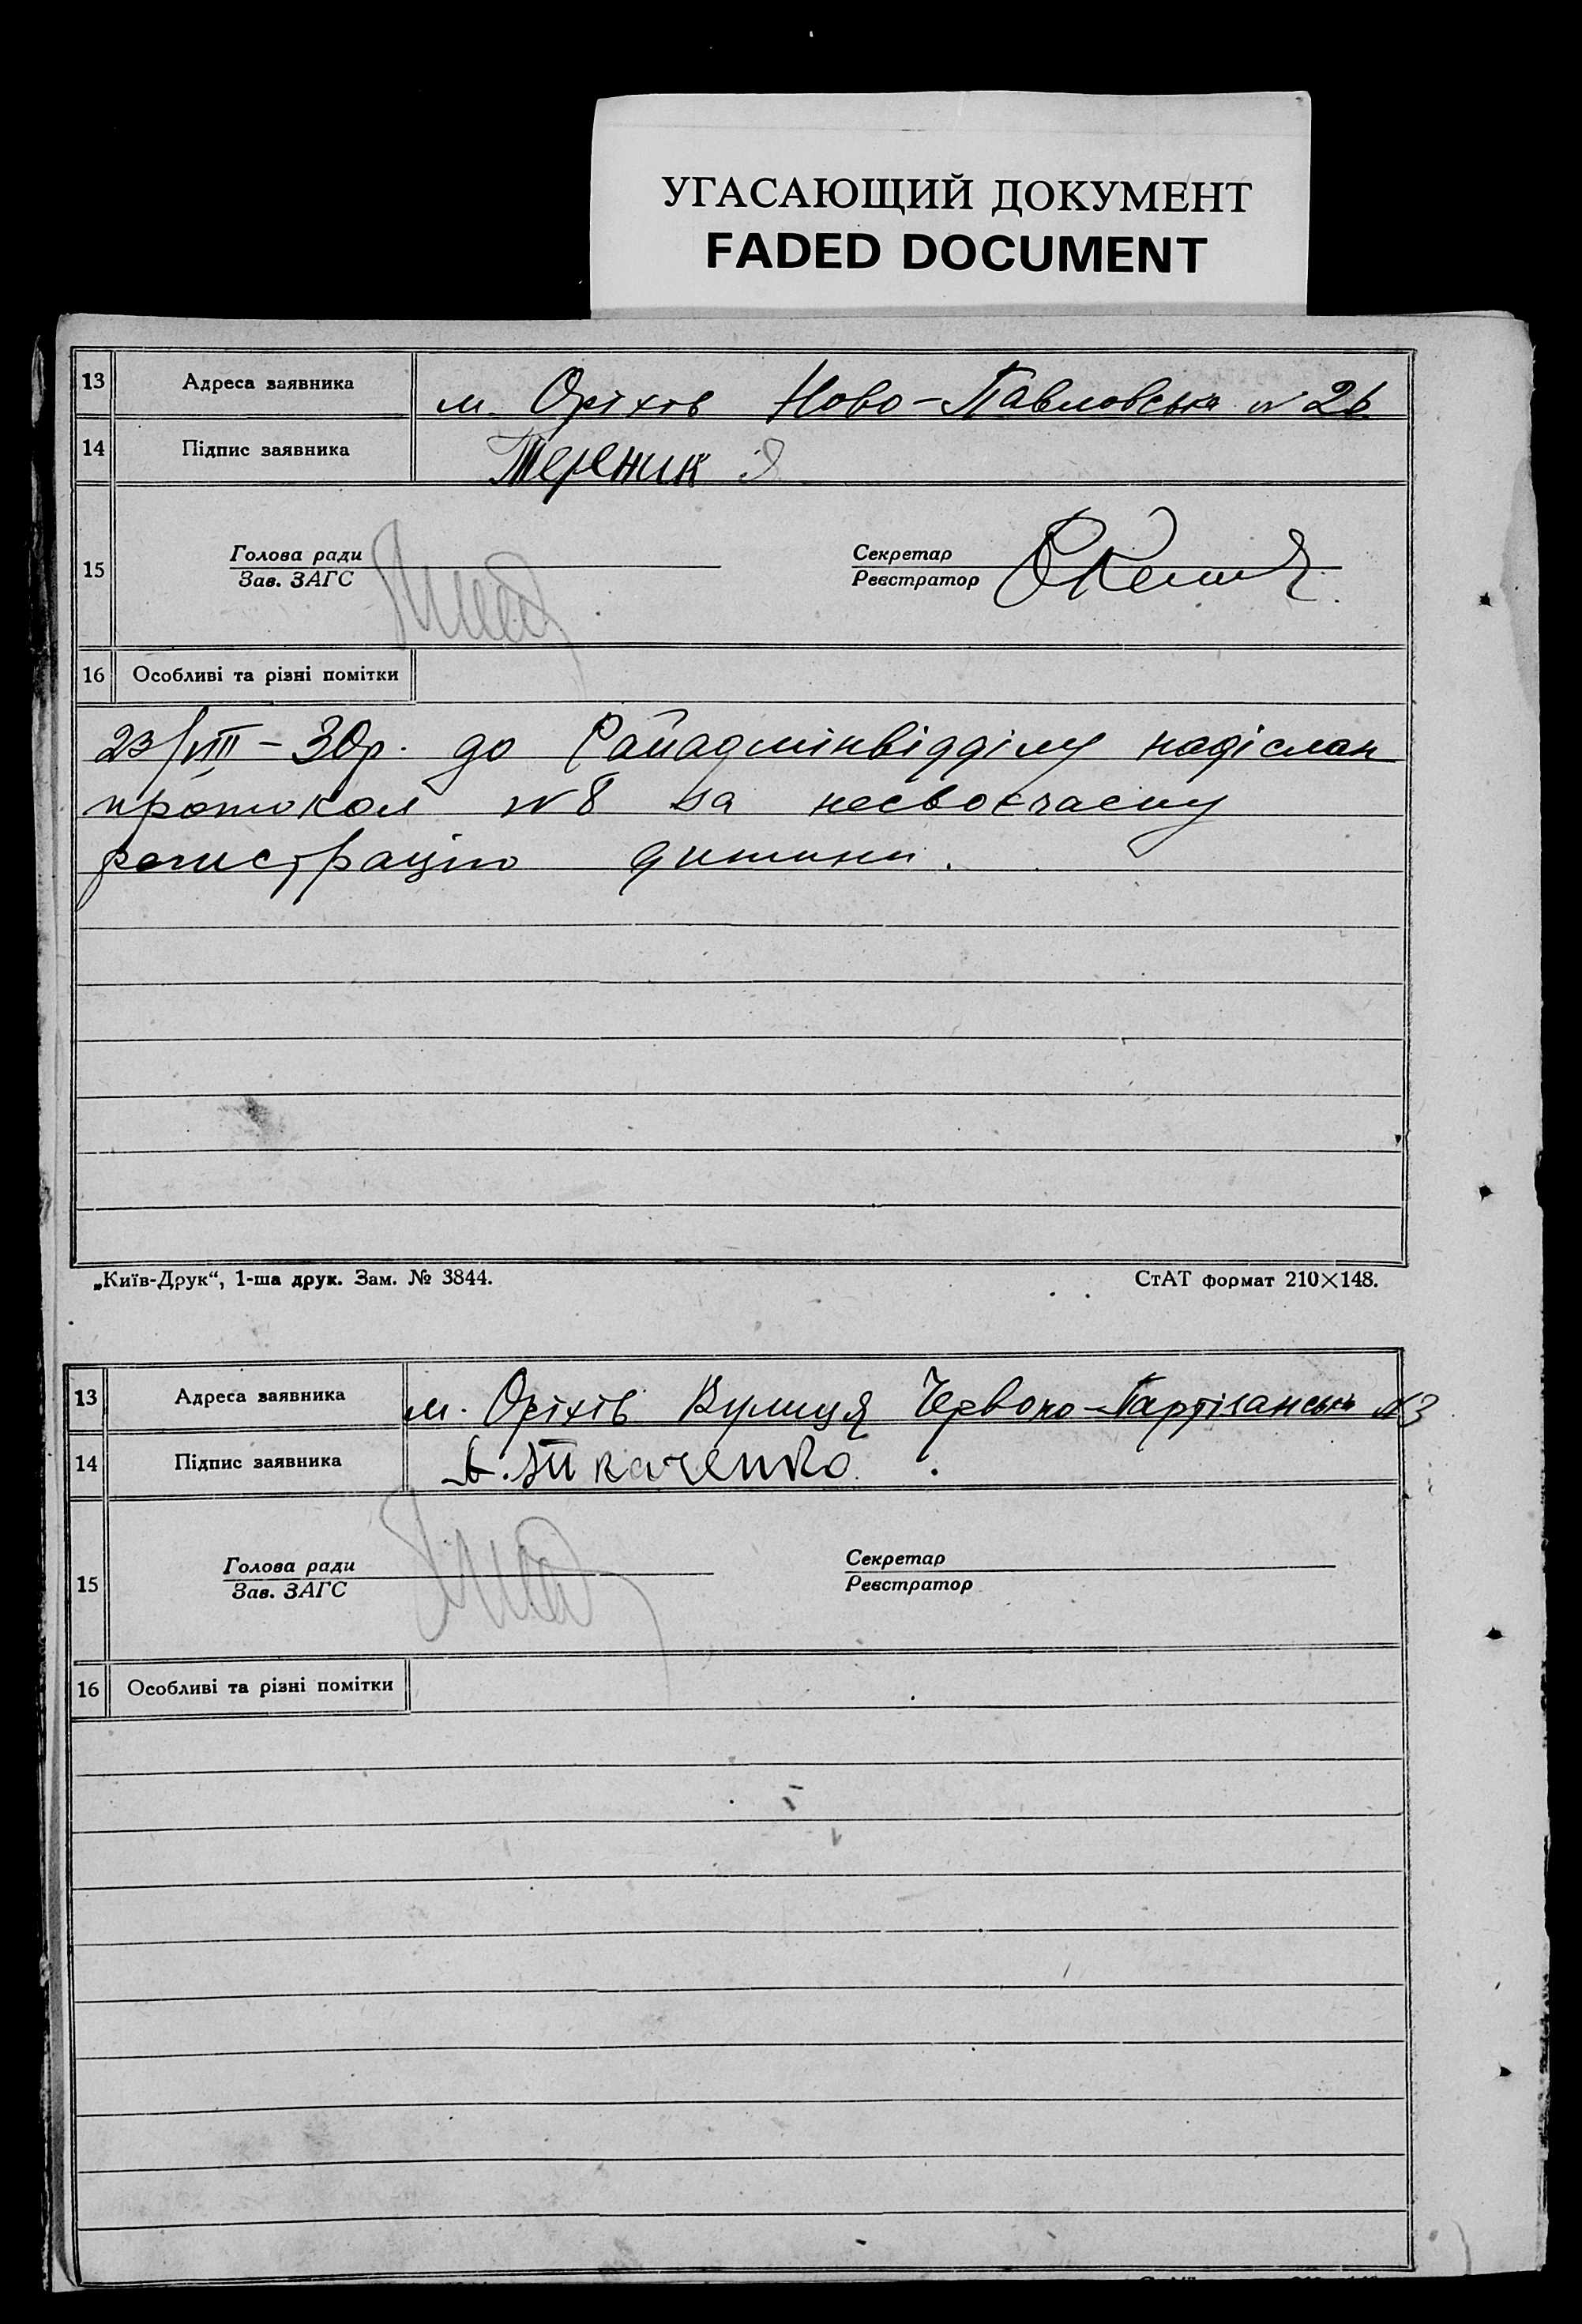 УГАСАЮЩИЙ ДОКУМЕНТ
FADED DOCUMENT
13 Адреса заявника м. Оріхів Ново-Павловська № 26
14 Підпис заявника Тережик Я
Голова ради Секретар
15
Зав. ЗАГС Реєстратор
16 Особливі та різні помітки
23/VIII-30р. до Райадмінвідділу надіслан
протокол №8 за несвоєчасну
регистрацію дитини.
„Київ-Друк“, 1-ша друк. Зам. № 3844. СтАТ формат 210×148.
13 Адреса заявника м. Оріхів Вулиця Червоно-Партізанська №3
14 Підпис заявника А. Ткаченко.
Голова ради Секретар
15
Зав. ЗАГС Реєстратор
16 Особливі та різні помітки